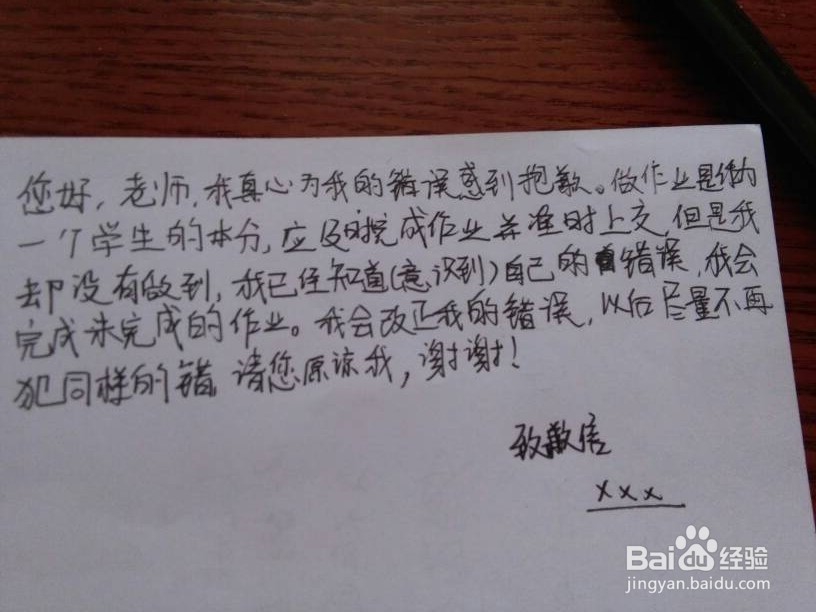 您好，老师，我真心为我的错误感到抱歉。做作业是作为
一个学生的本分，应及时完成作业并准时上交，但是我
却没有做到，我已经知道(意识到)自己的错误，我会
完成未完成的作业。我会改正我的错误，以后尽量不再
犯同样的错 请您原谅我，谢谢！
致歉信
xxx
Baidu经验
jingyan.baidu.com